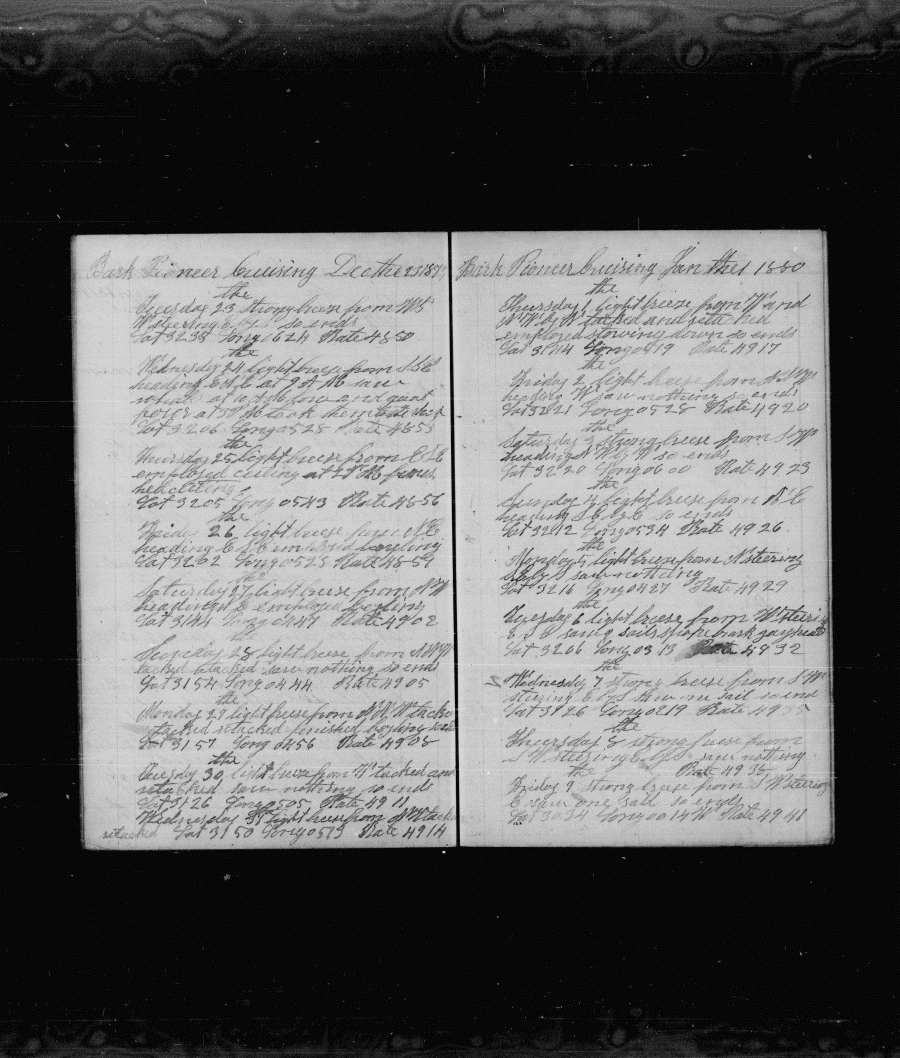 Bark Pioneer Cuising Dec the 23 1879
the
Tuesday 23 Strong breeze from W S
W steering so ends
Lat 3238 Long 1624 Rate 4850
the
Wednesday 24 light breeze from S S E
heading at 9 A M saw
whals at low and
at M took him
Lat 3206 Long 0528 Rate 4853
the
Thursday 25 light breeze from E S E
employed cuting at 2 P M
hed cuting
Lat 3205 Long 0543 Rate 4856
the
Friday 26 light breese from N E
heading E S E employed boyling
Lat 3202 Long 0528 Rate 4859
the
Saturday 27 light breese from N W
heading E employed boyling
Lat 3144 Long 0447 Rate 4902
the
Sunday 28 light breese from N N W
tacked tacked saw nothing so ends
Lat 3154 Long 0444 Rate 4905
the
Monday 29 light breese from N N W tacked
tacked retacked fenished boyling
Lat 3157 Long 0456 Rate 4908
the
Tuesday 30 light breeze from W tacked and
retacked saw nothing so ends
Lat 3126 Long 0505 Rate 4911
Wednesday 31 light breese from N W tacked
retacked Lat 3150 Long 0513 Rate 4914
Bark Pioneer Cuising Jan the 1 1880
the
Thursday 1 light breeze from W and
N W by W tacked and retacked
employed stowing down so ends
Lat 3144 Long 0419 Rate 4917
the
Friday 2 light breese from S S W
heading W saw nothing so ends
Lat 3221 Long 0528 Rate 4920
the
Saturday 3 strong breese from S W
heading W by N so ends
Lat 3220 Long 0600 Rate 4923
the
Sunday 4 light breese from N E
heading S E by E so ends
Lat 3212 Long 0534 Rate 4926
the
Monday 5 light breese from N steering
E by S saw nothing
Lat 3216 Long 0427 Rate 4929
the
Tuesday 6 light breese from W steering
E S E saw sails spoke bark
Lat 3206 Long 0313 Rate 4932
the
Wednesday 7 strong breese from S W
steering E by S saw one sail so end
Lat 3126 Long 0219 Rate 4935
the
Thursday 8 strong breese from
S W steering E by S saw nothing
the Rate 4938
Friday 9 strong breese from S W steering
E saw one sail so ends
Lat 3034 Long 0014 W Rate 4941